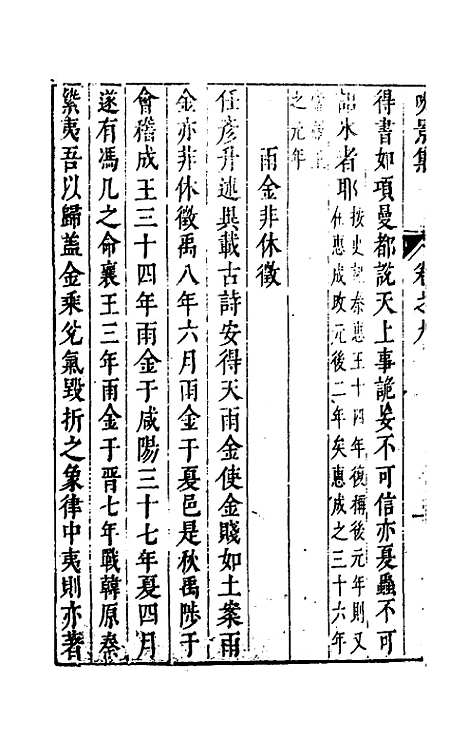 得書如項曼都說天上事詭妄不可信亦夏蟲不可
語氷者耶
按史記秦惠王十四年復稱後元年則又
在惠成改元後二年矣惠成之三十六年
之元年
雨金非休徵
任彥升述異載古詩安得天雨金使金賤如土案雨
金亦非休徵禹八年六月雨金于夏邑是秋禹陟于
會稽成王三十四年雨金于咸陽三十七年夏四月
遂有馮几之命襄王三年雨金于晋七年戰韓原秦
縶夷吾以歸盖金乘兊氣毀折之象律中夷則亦著